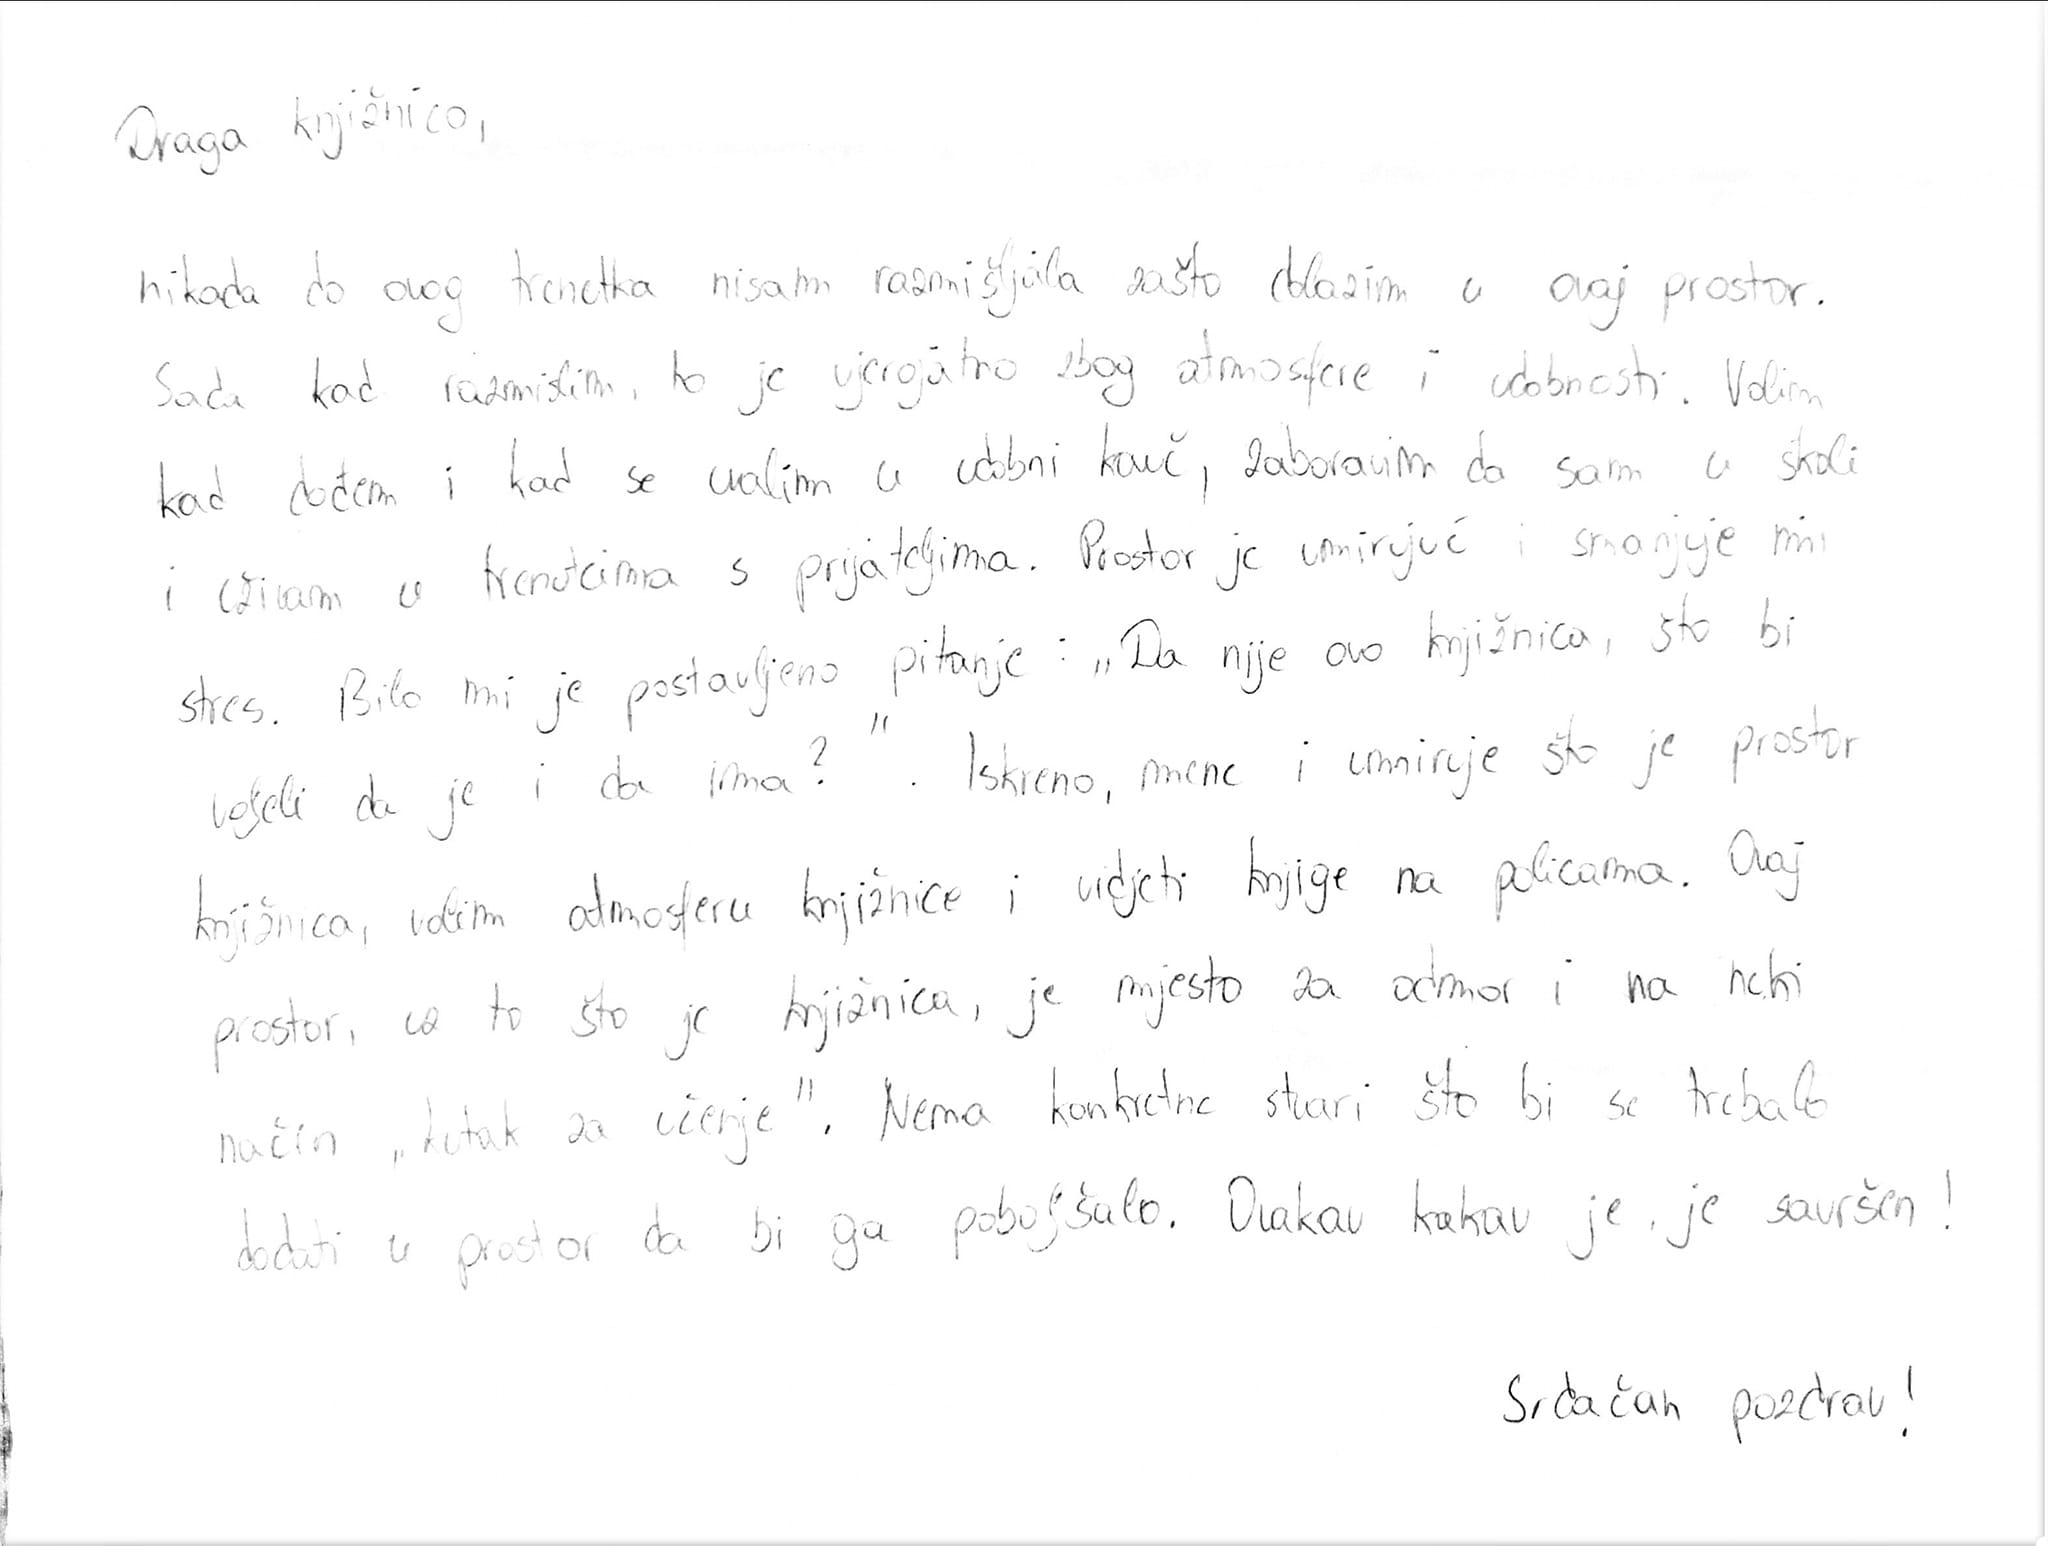 Draga knjižnico,
nikada do ovog trenutka nisam razmišljala zašto dolazim u ovaj prostor.
Sada kad razmislim, to je vjerojatno zbog atmosfere i udobnosti. Volim
kad dođem i kad se uvalim u udobni kauč, zaboravim da sam u školi
i uživam u trenutcima s prijateljima. Prostor je umirujuć i smanjuje mi
stres. Bilo mi je postavljeno pitanje: „Da nije ovo knjižnica, što bi
voljeli da je i da ima?". Iskreno, mene i umiruje što je prostor
knjižnica, volim atmosferu knjižnice i vidjeti knjige na policama. Ovaj
prostor, uz to što je knjižnica, je mjesto za odmor i na neki
način „kutak za učenje". Nema konkretne stvari što bi se trebalo
dodati u prostor da bi ga poboljšalo. Ovakav kakav je, je savršen!
Srdačan pozdrav!